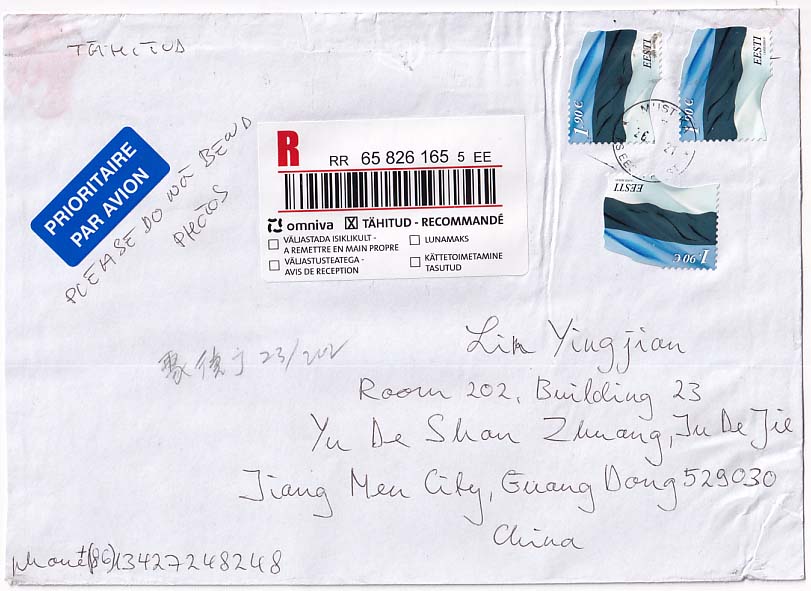 TÄHITUD
EESTI
1.90 €
EESTI
1.90 €
EESTI
1.90 €
PRIORITAIRE
PAR AVION
PLEASE DO NOT BEND
PHOTOS
R
RR 65 826 165 5 EE
omniva ☒ TÄHITUD - RECOMMANDÉ
☐ VÄLJASTADA ISIKLIKULT -
A REMETTRE EN MAIN PROPRE
☐ LUNAMAKS
☐ VÄLJASTUSTEATEGA -
AVIS DE RECEPTION
☐ KÄTTETOIMETAMINE
TASUTUD
23/202
Lin Yingjian
Room 202, Building 23
Yu De Shan Zhuang, Ju De Jie
Jiang Men City, Guang Dong 529030
China
phone +(86)13427248248